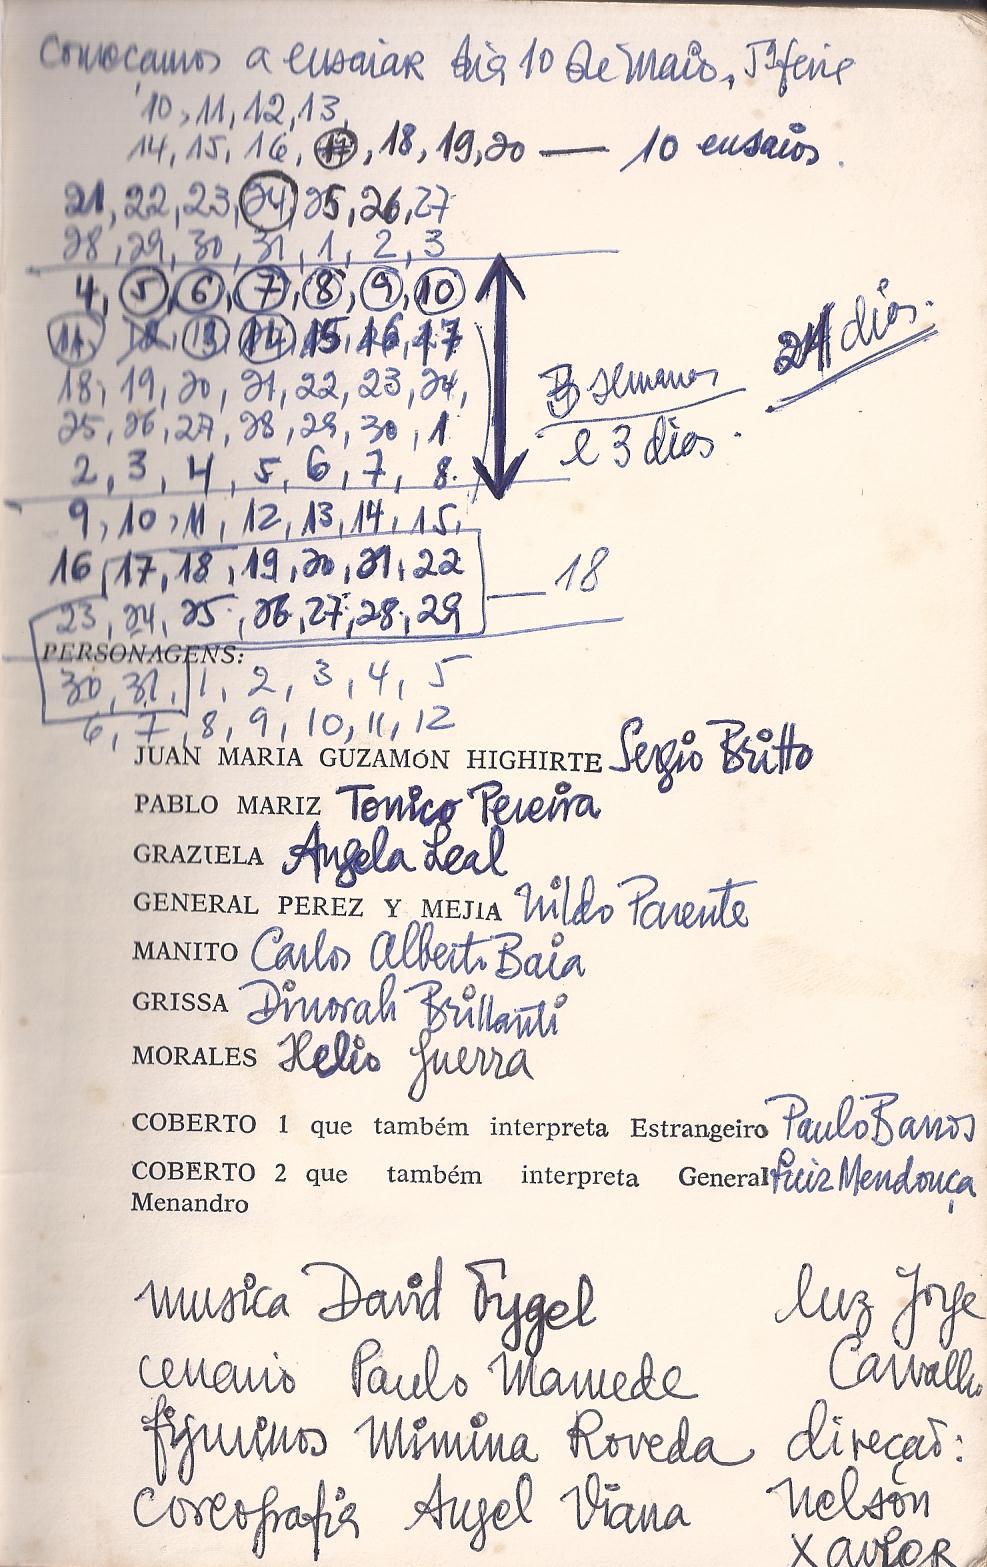 Comecamos a ensaiar dia 10 de Maio, 5ª feira
10, 11, 12, 13,
14, 15, 16, 17, 18, 19, 20 — 10 ensaios.
21, 22, 23, 24, 25, 26, 27
28, 29, 30, 31, 1, 2, 3
4, 5, 6, 7, 8, 9, 10
11, 12, 13, 14, 15, 16, 17
24 dias.
18, 19, 20, 21, 22, 23, 24,
semanas
25, 26, 27, 28, 29, 30, 1
e 3 dias.
2, 3, 4, 5, 6, 7, 8.
9, 10, 11, 12, 13, 14, 15,
16, 17, 18, 19, 20, 21, 22
— 18
23, 24, 25, 26, 27, 28, 29
PERSONAGENS:
30, 31, 1, 2, 3, 4, 5
6, 7, 8, 9, 10, 11, 12
JUAN MARIA GUZAMÓN HIGHIRTE Sergio Britto
PABLO MARIZ Tonico Pereira
GRAZIELA Angela Leal
GENERAL PEREZ Y MEJIA Nildo Parente
MANITO Carlos Alberto Baia
GRISSA Dinorah Brillanti
MORALES Helio Guerra
COBERTO 1 que também interpreta Estrangeiro Paulo Barros
COBERTO 2 que também interpreta General Luiz Mendonça
Menandro
musica David Tygel
cenario Paulo Mamede
figurinos Mimina Roveda
Coreografia Angel Viana
luz Jorge
Carvalho
direção:
Nelson
Xavier